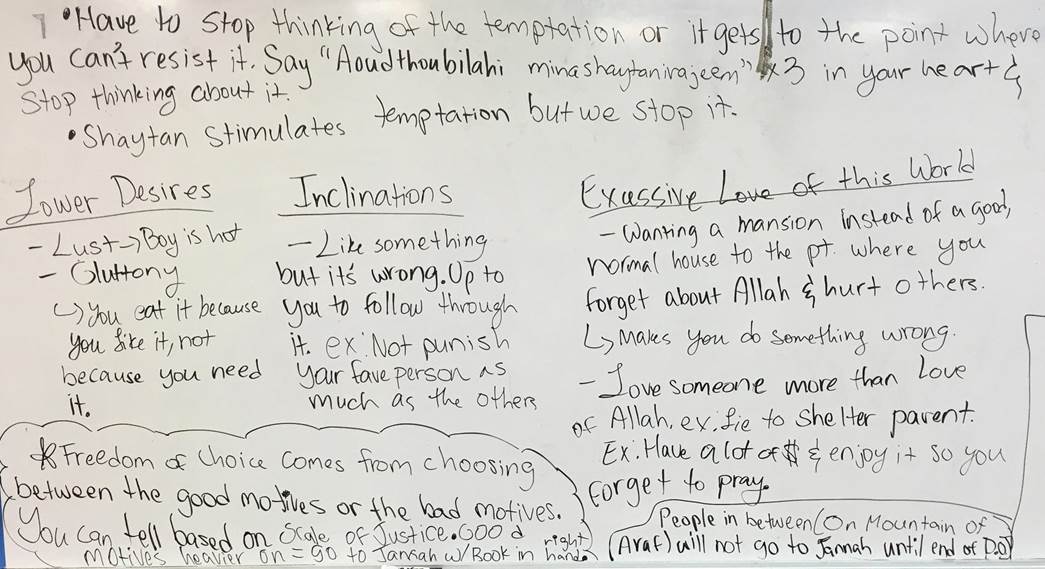 •Have to stop thinking of the temptation or it gets to the point where
you can't resist it. Say "Aoudthoubilahi minashaytanirajeem" x3 in your heart &
stop thinking about it.
•Shaytan stimulates temptation but we stop it.
Lower Desires
- Lust→Boy is hot
- Gluttony
↳you eat it because
you like it, not
because you need
it.
Inclinations
- Like something
but it's wrong. Up to
you to follow through
it. ex: Not punish
your fave person as
much as the others
Excessive Love of this World
- Wanting a mansion instead of a good,
normal house to the pt. where you
forget about Allah & hurt others.
↳ Makes you do something wrong.
- Love someone more than love
of Allah. ex. lie to shelter parent.
Ex: Have a lot of $ & enjoy it so you
forget to pray.
*Freedom of Choice comes from choosing
between the good motives or the bad motives.
You can tell based on Scale of Justice. Good
motives heavier on = go to Jannah w/Book in right hand.
People in between (On Mountain of
Araf) will not go to Jannah until end of DOJ